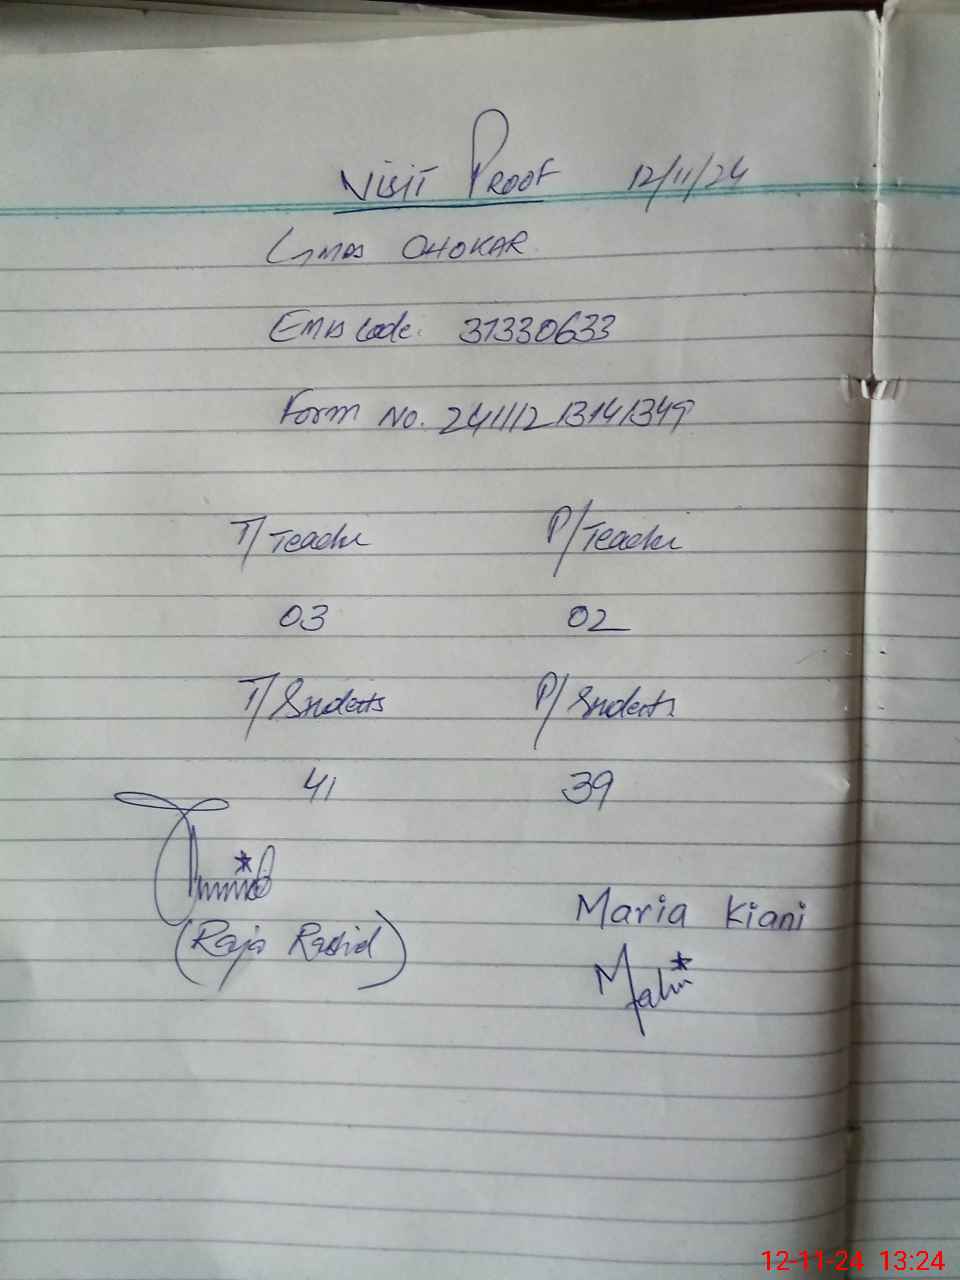 Visit Proof 12/11/24
GMPS CHOKAR
Emis Code: 37330633
Form No. 24111213141349
T/Teache P/Teache
03 02
T/Students P/Students
41 39
(Raja Rashid)
Maria Kiani
12-11-24 13:24